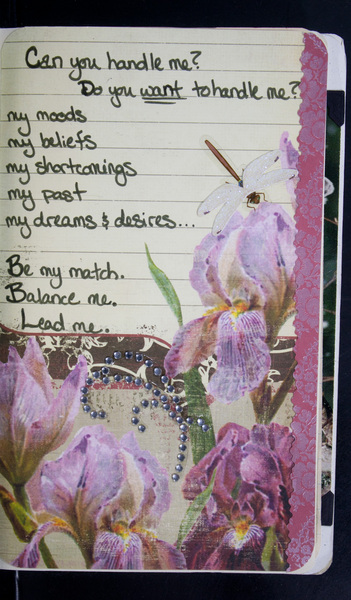 Can you handle me?
Do you want to handle me?
my moods
my beliefs
my shortcomings
my past
my dreams & desires...
Be my match.
Balance me.
Lead me.